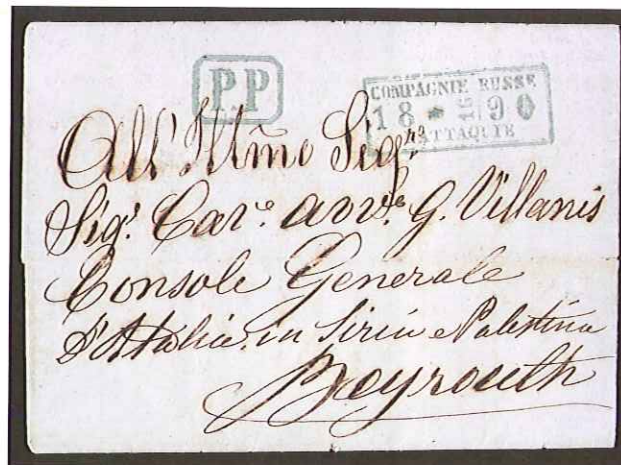 P.P
COMPAGNIE RUSSE
18 * 16/ 90
LATTAQUIE
All' Illmo Sigre
Sig.r Cav.e avv.to G. Villanis
Console Generale
d'Italia in Siria e Palestina
Beyrouth